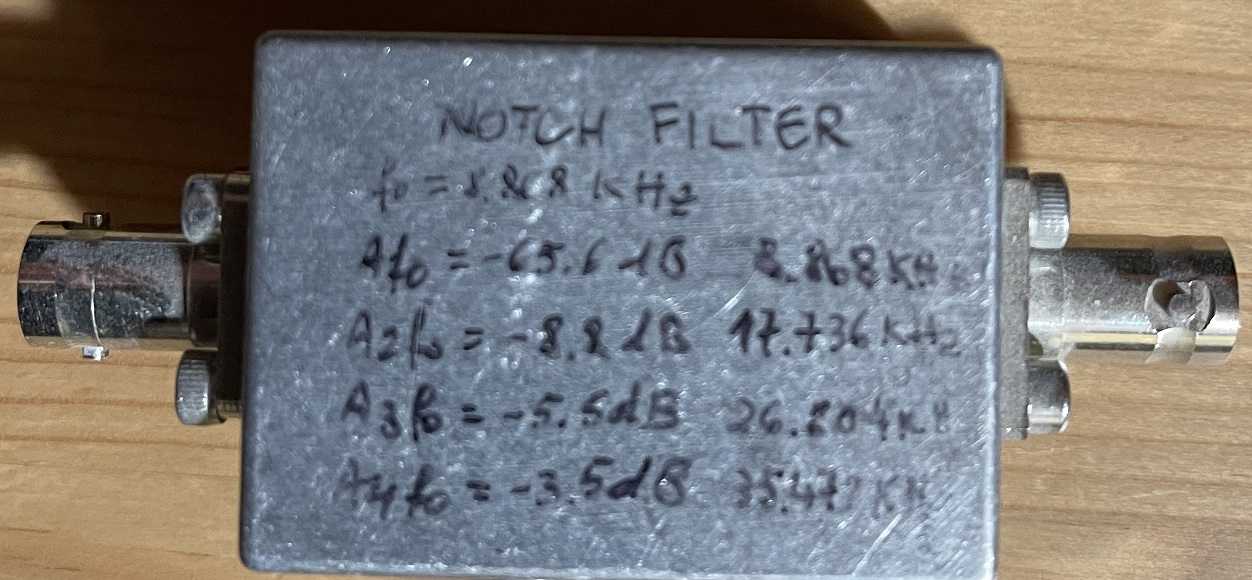 NOTCH FILTER
f0 = 8.868 KHz
Af0 = -65.6 dB 8.868 KHz
A2f0 = -8.8 dB 17.736 KHz
A3f0 = -5.5 dB 26.604 KH
A4f0 = -3.5 dB 35.472 KH